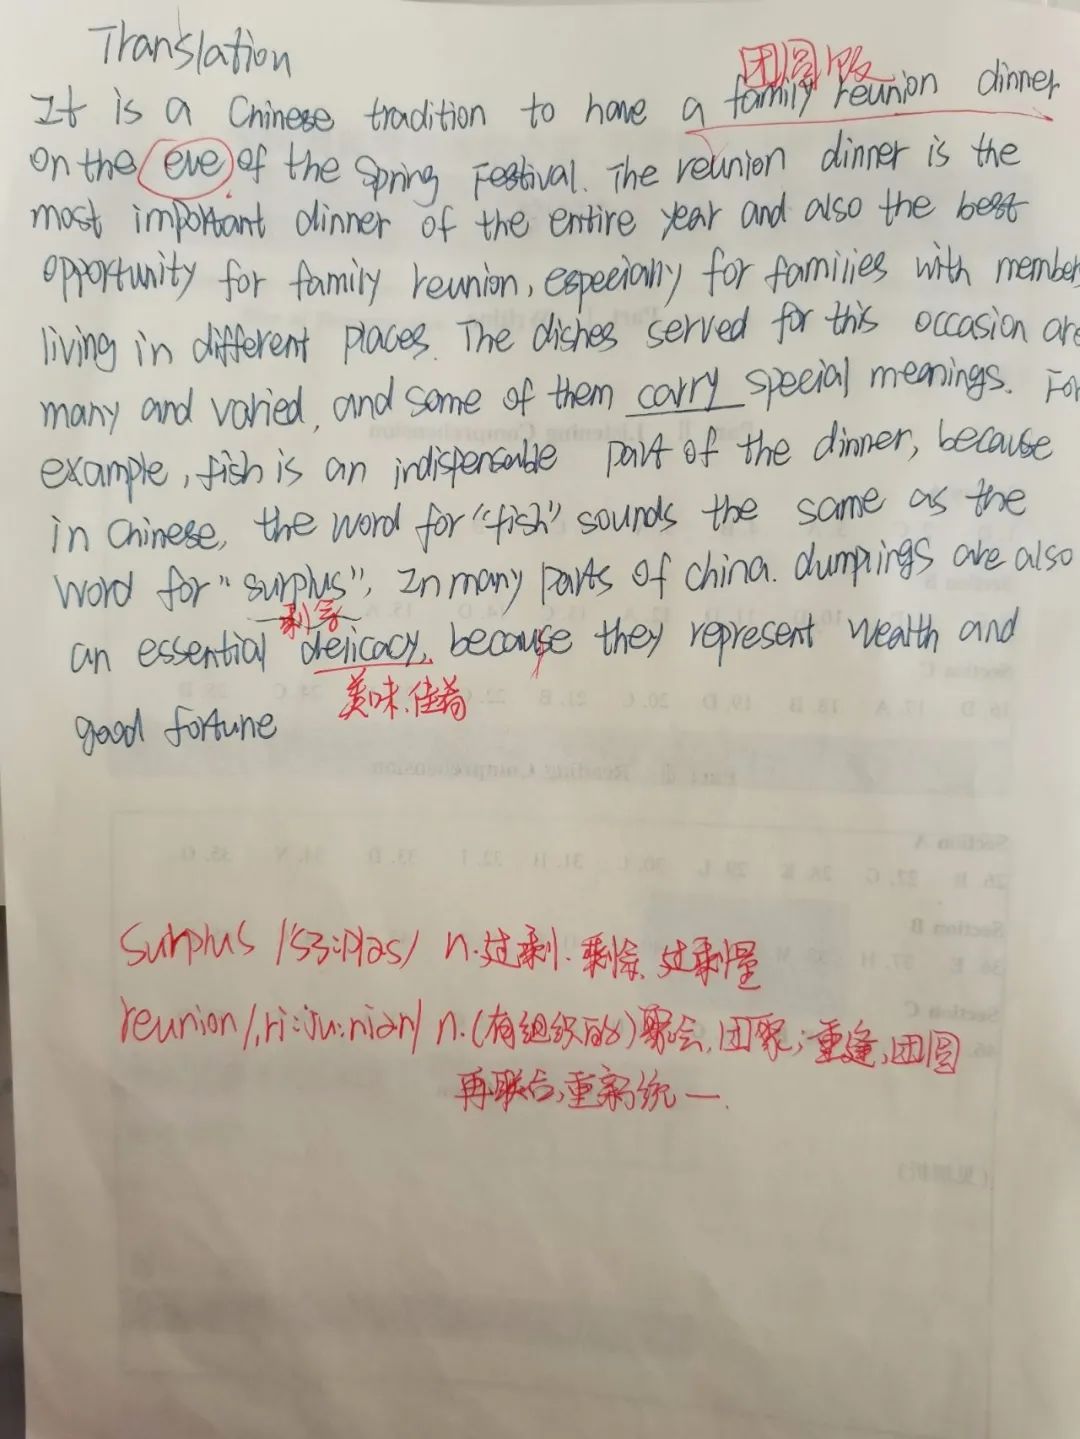 Translation
团圆饭
It is a Chinese tradition to have a family reunion dinner
on the eve of the Spring Festival. The reunion dinner is the
most important dinner of the entire year and also the best
opportunity for family reunion, especially for families with member
living in different places. The dishes served for this occasion are
many and varied, and some of them carry special meanings. For
example, fish is an indispensable part of the dinner, because
in Chinese, the word for "fish" sounds the same as the
word for "surplus", In many parts of china. dumpings are also
剩余
an essential delicacy, because they represent wealth and
美味.佳肴
good fortune
surplus /'sɜ:pləs/ n.过剩.剩余.过剩量
reunion /,ri:'ju:niən/ n.(有组织的)聚会,团聚;重逢,团圆
再联合,重新统一.